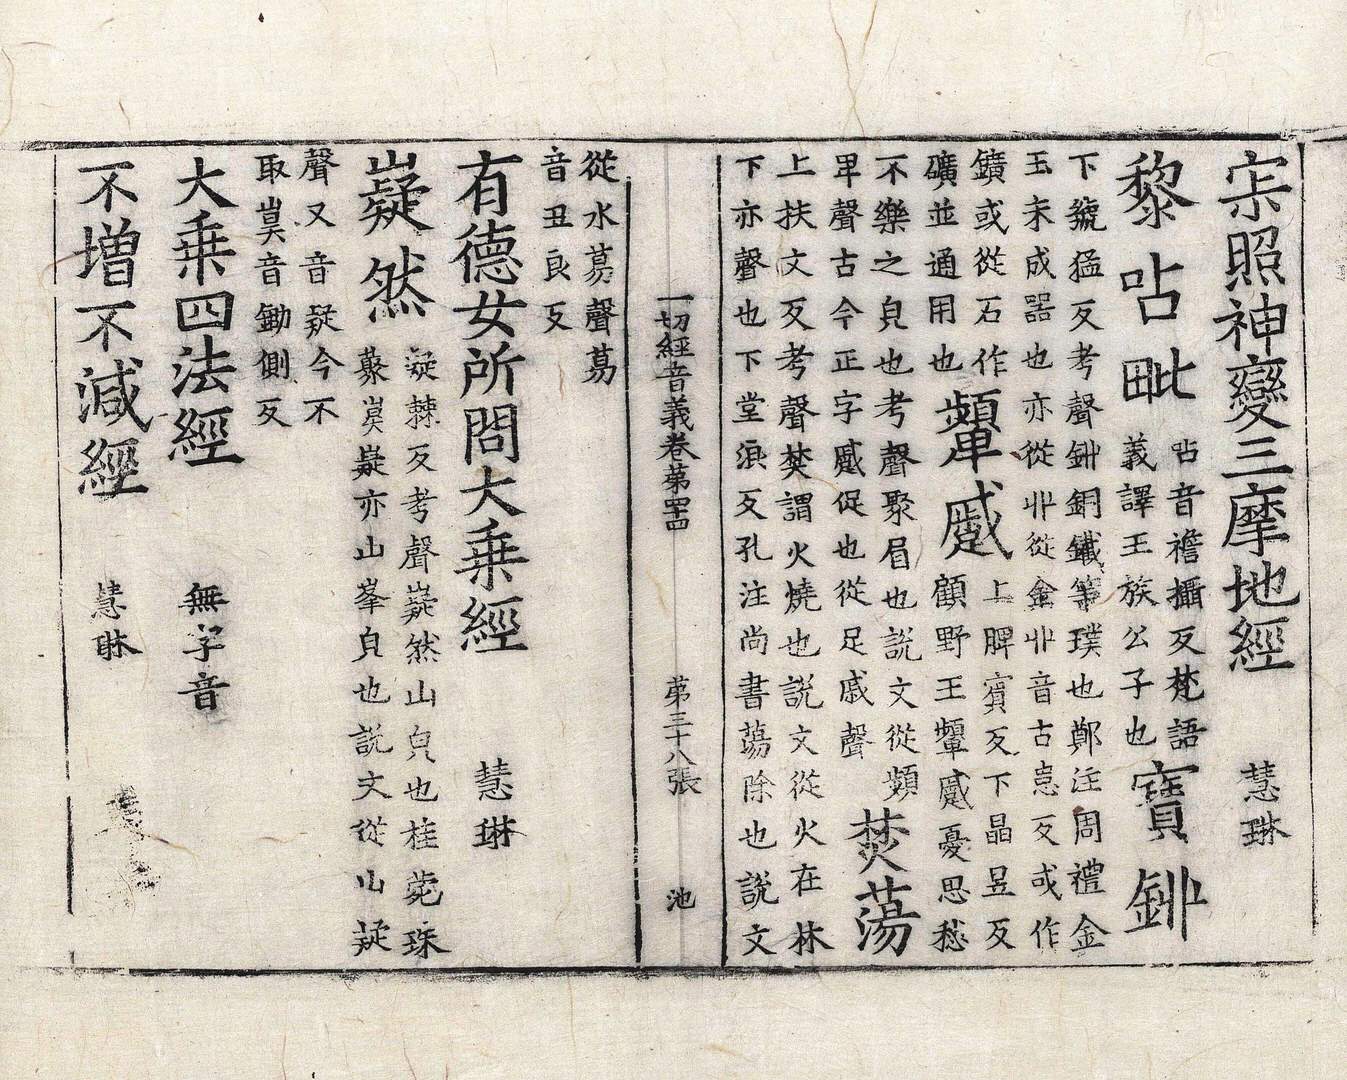 寂照神變三摩地經 慧琳
黎呫毗 呫音襜攝反梵語
義譯王族公子也 寶𨥥
下虢猛反考聲𨥥銅鐵等璞也鄭注周禮金
玉未成器也亦從丱從金丱音古患反或作
鑛或從石作
礦並通用也 顰蹙 上脾賓反下晶昱反
顧野王顰蹙憂思愁
不樂之皃也考聲聚眉也說文從頻
卑聲古今正字蹙促也從足戚聲 焚蕩
上扶文反考聲焚謂火燒也說文從火在林
下亦聲也下堂浪反孔注尚書蕩除也說文
一切經音義卷苐𦉭四 苐三十八張 池
從水募聲募
音丑良反
有德女所問大乘經 慧琳
嶷然 凝棘反考聲嶷然山皃也桂菀珠
藂㠜嶷亦山峯皃也說文從山疑
聲又音疑今不
取㠜音鋤側反
大乘四法經 無字音
不增不減經 慧琳